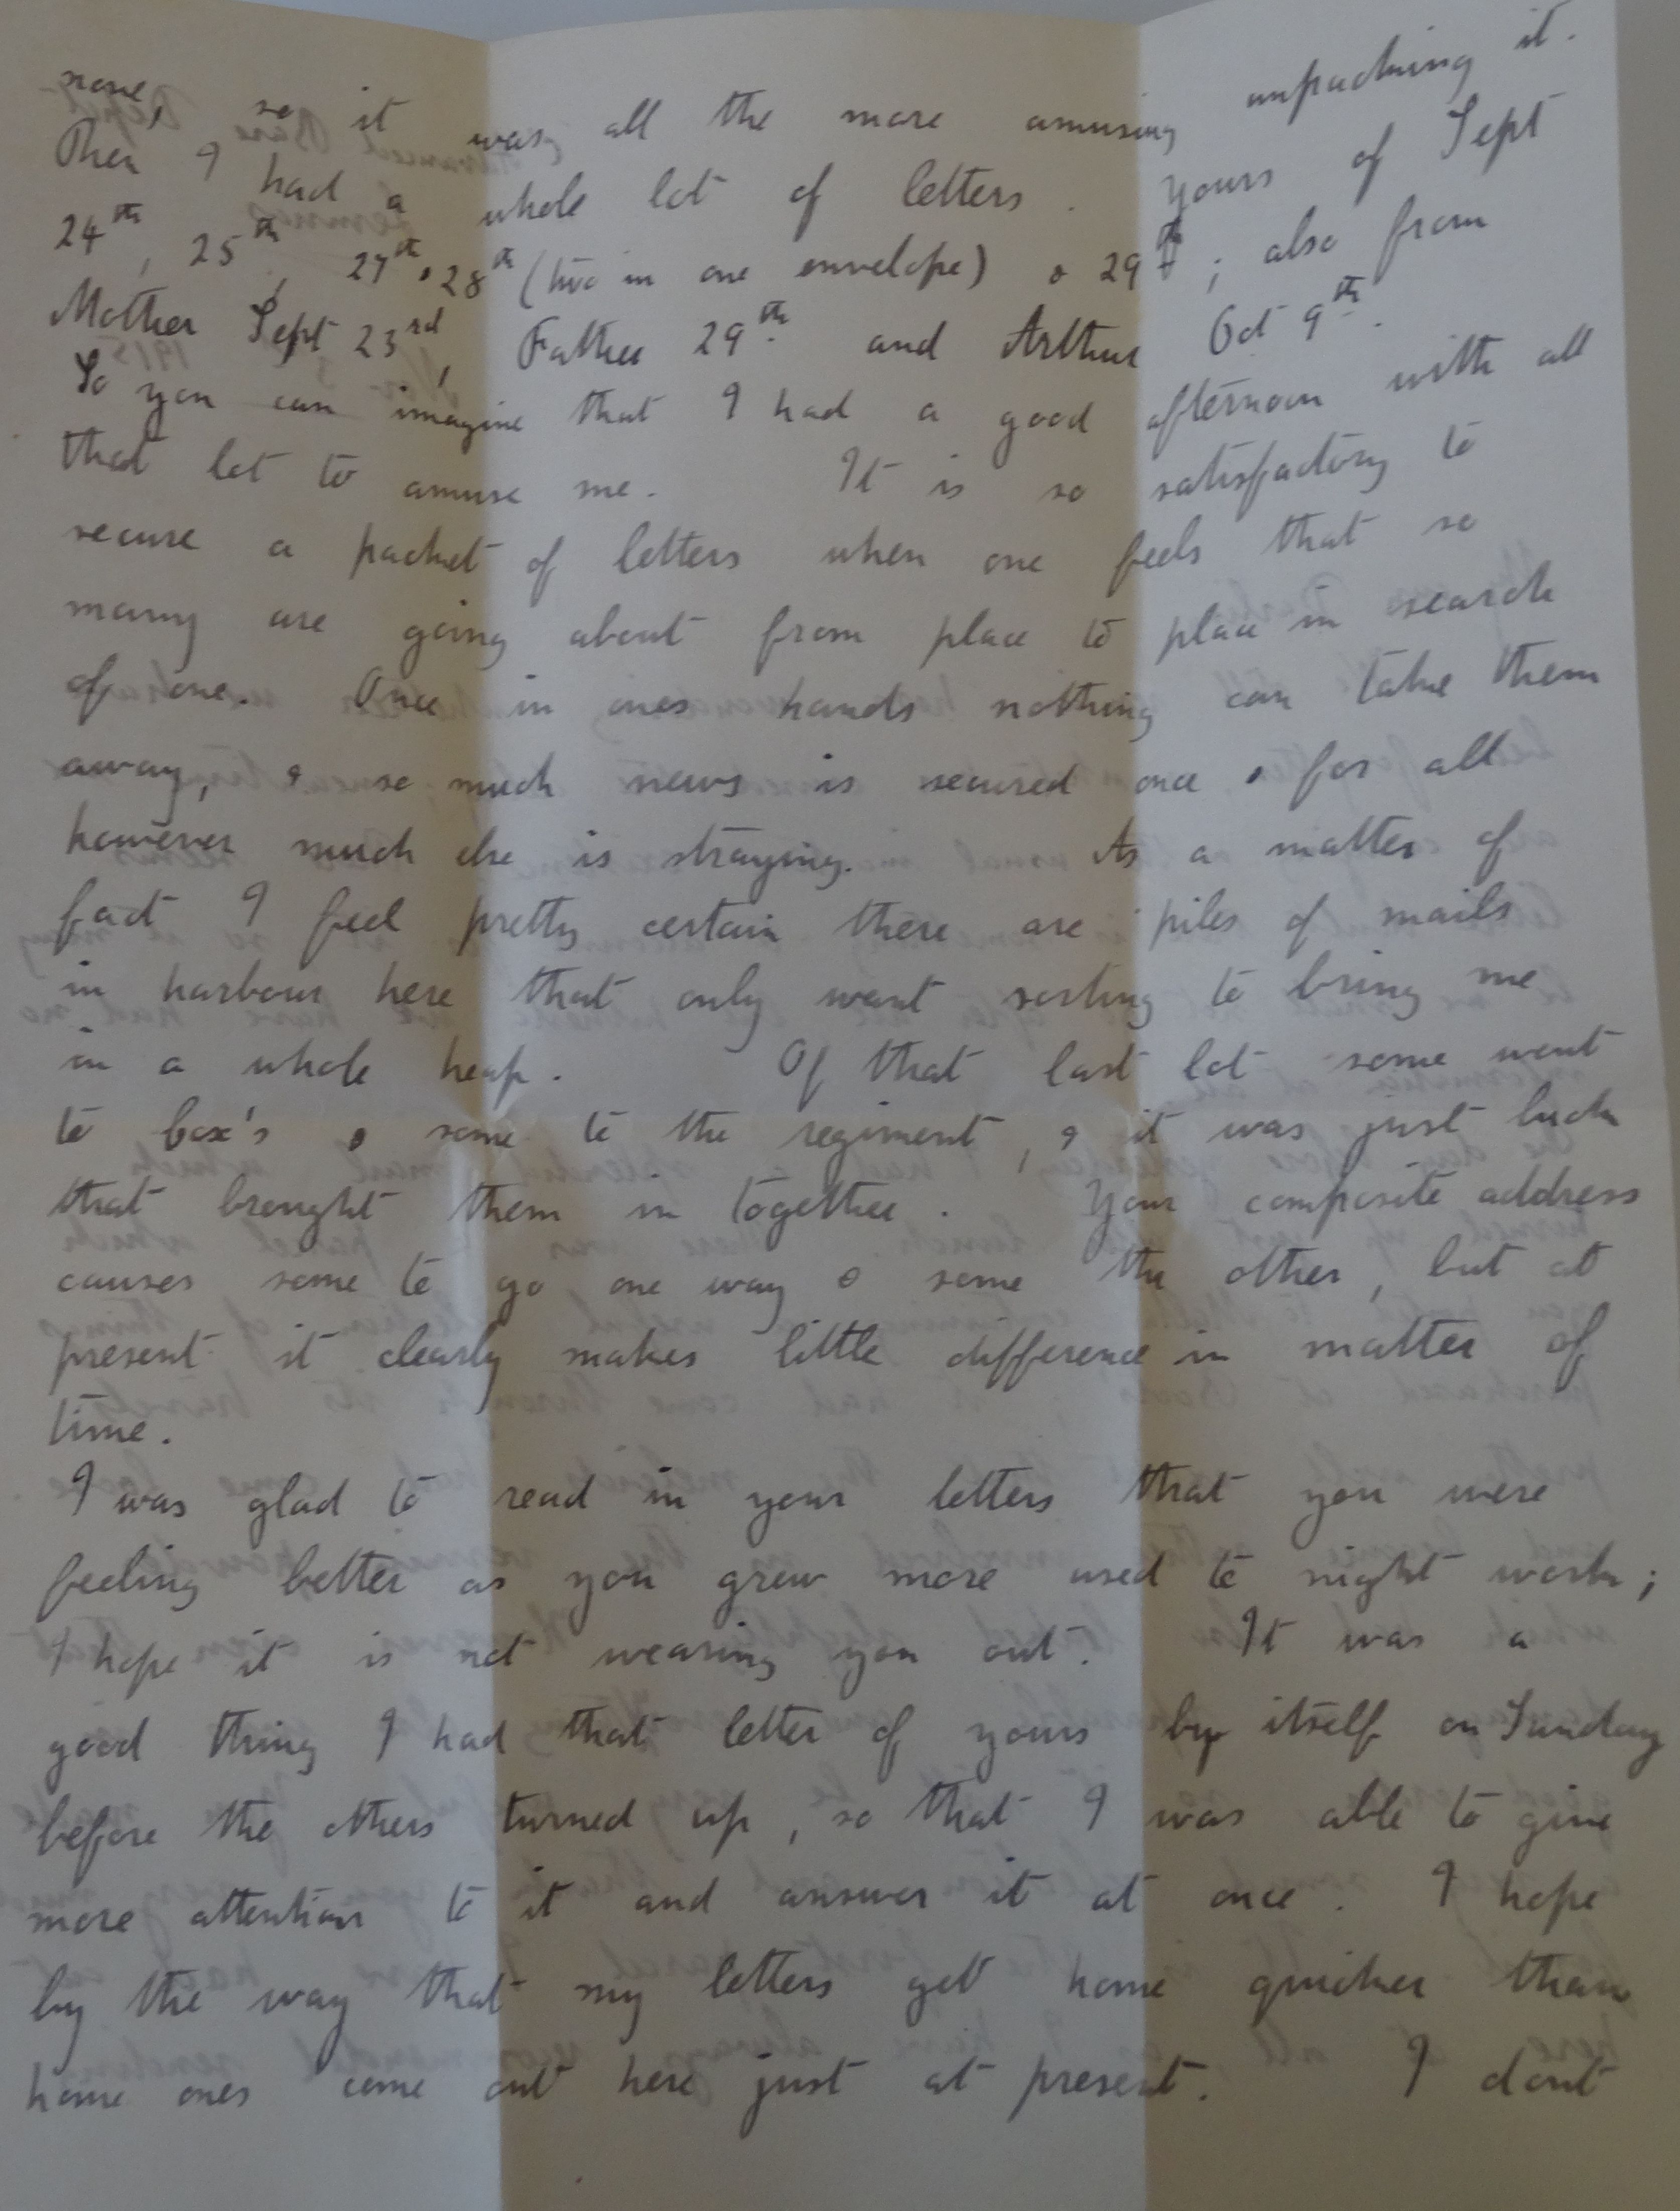 none, so it was all the more amusing unpacking it.
Then I had a whole lot of letters. Yours of Sept
24th, 25th, 27th & 28th (two in one envelope) & 29th; also from
Mother Sept 23rd, Father 29th. and Arthur Oct 9th.
So you can imagine that I had a good afternoon with all
that lot to amuse me. It is so satisfactory to
secure a packet of letters when one feels that so
many are going about from place to place in search
of one. Once in ones hands nothing can take them
away, & so much news is secured once & for all
however much else is straying. As a matter of
fact I feel pretty certain there are piles of mails
in harbour here that only want sorting to bring me
in a whole heap. Of that last lot some went
to Cox's & some to the regiment, & it was just luck
that brought them in together. Your composite address
causes some to go one way & some the other, but at
present it clearly makes little difference in matter of
time.
I was glad to read in your letters that you were
feeling better as you grew more used to night work;
I hope it is not wearing you out. It was a
good thing I had that letter of yours by itself on Sunday
before the others turned up, so that I was able to give
more attention to it and answer it at once. I hope
by the way that my letters get home quicker than
home ones come out here just at present. I dont